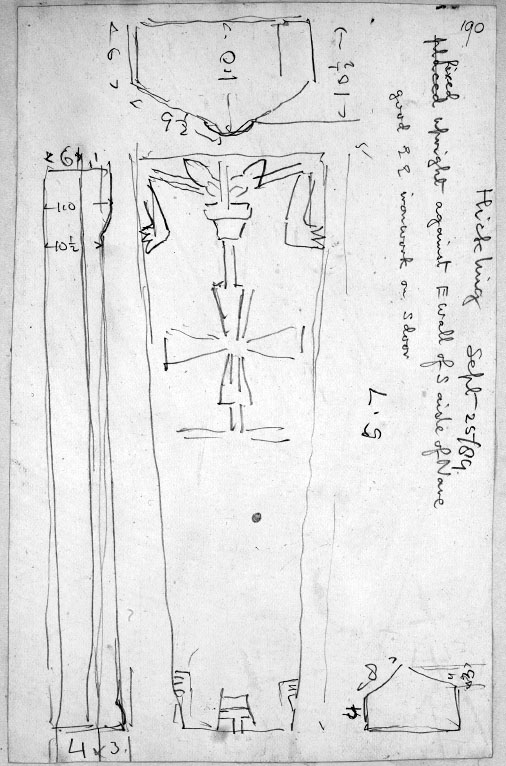 190
Hickling Sept 25/89.
fixed
placed upright against E wall of S aisle of Nave
good E E ironwork on S door
9
1.0
10½
9½
6
1.0
10½
5
7.9
4
3
8
4